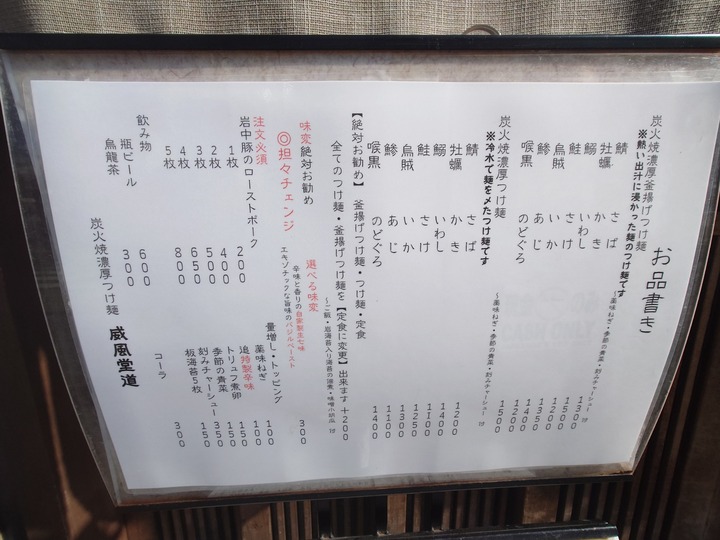 お品書き
炭火焼濃厚釜揚げつけ麺
※熱い出汁に浸かった麺のつけ麺です
〜薬味ねぎ・季節の青菜・刻みチャーシュー 付
鯖 さば 1300
牡蠣 かき 1500
鰯 いわし 1200
鮭 さけ 1350
烏賊 いか 1400
鯵 あじ 1200
喉黒 のどぐろ 1500
炭火焼濃厚つけ麺
※冷水で麺を〆たつけ麺です
〜薬味ねぎ・季節の青菜・刻みチャーシュー 付
鯖 さば 1200
牡蠣 かき 1400
鰯 いわし 1100
鮭 さけ 1250
烏賊 いか 1300
鯵 あじ 1100
喉黒 のどぐろ 1400
【絶対お勧め】 釜揚げつけ麺・つけ麺・定食
全てのつけ麺・釜揚げつけ麺を【定食に変更】出来ます +200
味変絶対お勧め
◎担々チェンジ 300
選べる味変
辛味と香りの自家製生七味
エキゾチックな旨味のバジルペースト
注文必須
岩中豚のローストポーク
1枚 200
2枚 400
3枚 500
4枚 650
5枚 800
量増し・トッピング
薬味ねぎ 100
追特製辛味 100
トリュフ煮卵 150
季節の青菜 150
刻みチャーシュー 350
板海苔5枚 150
飲み物
瓶ビール 600
烏龍茶 300
コーラ 300
炭火焼濃厚つけ麺 威風堂道